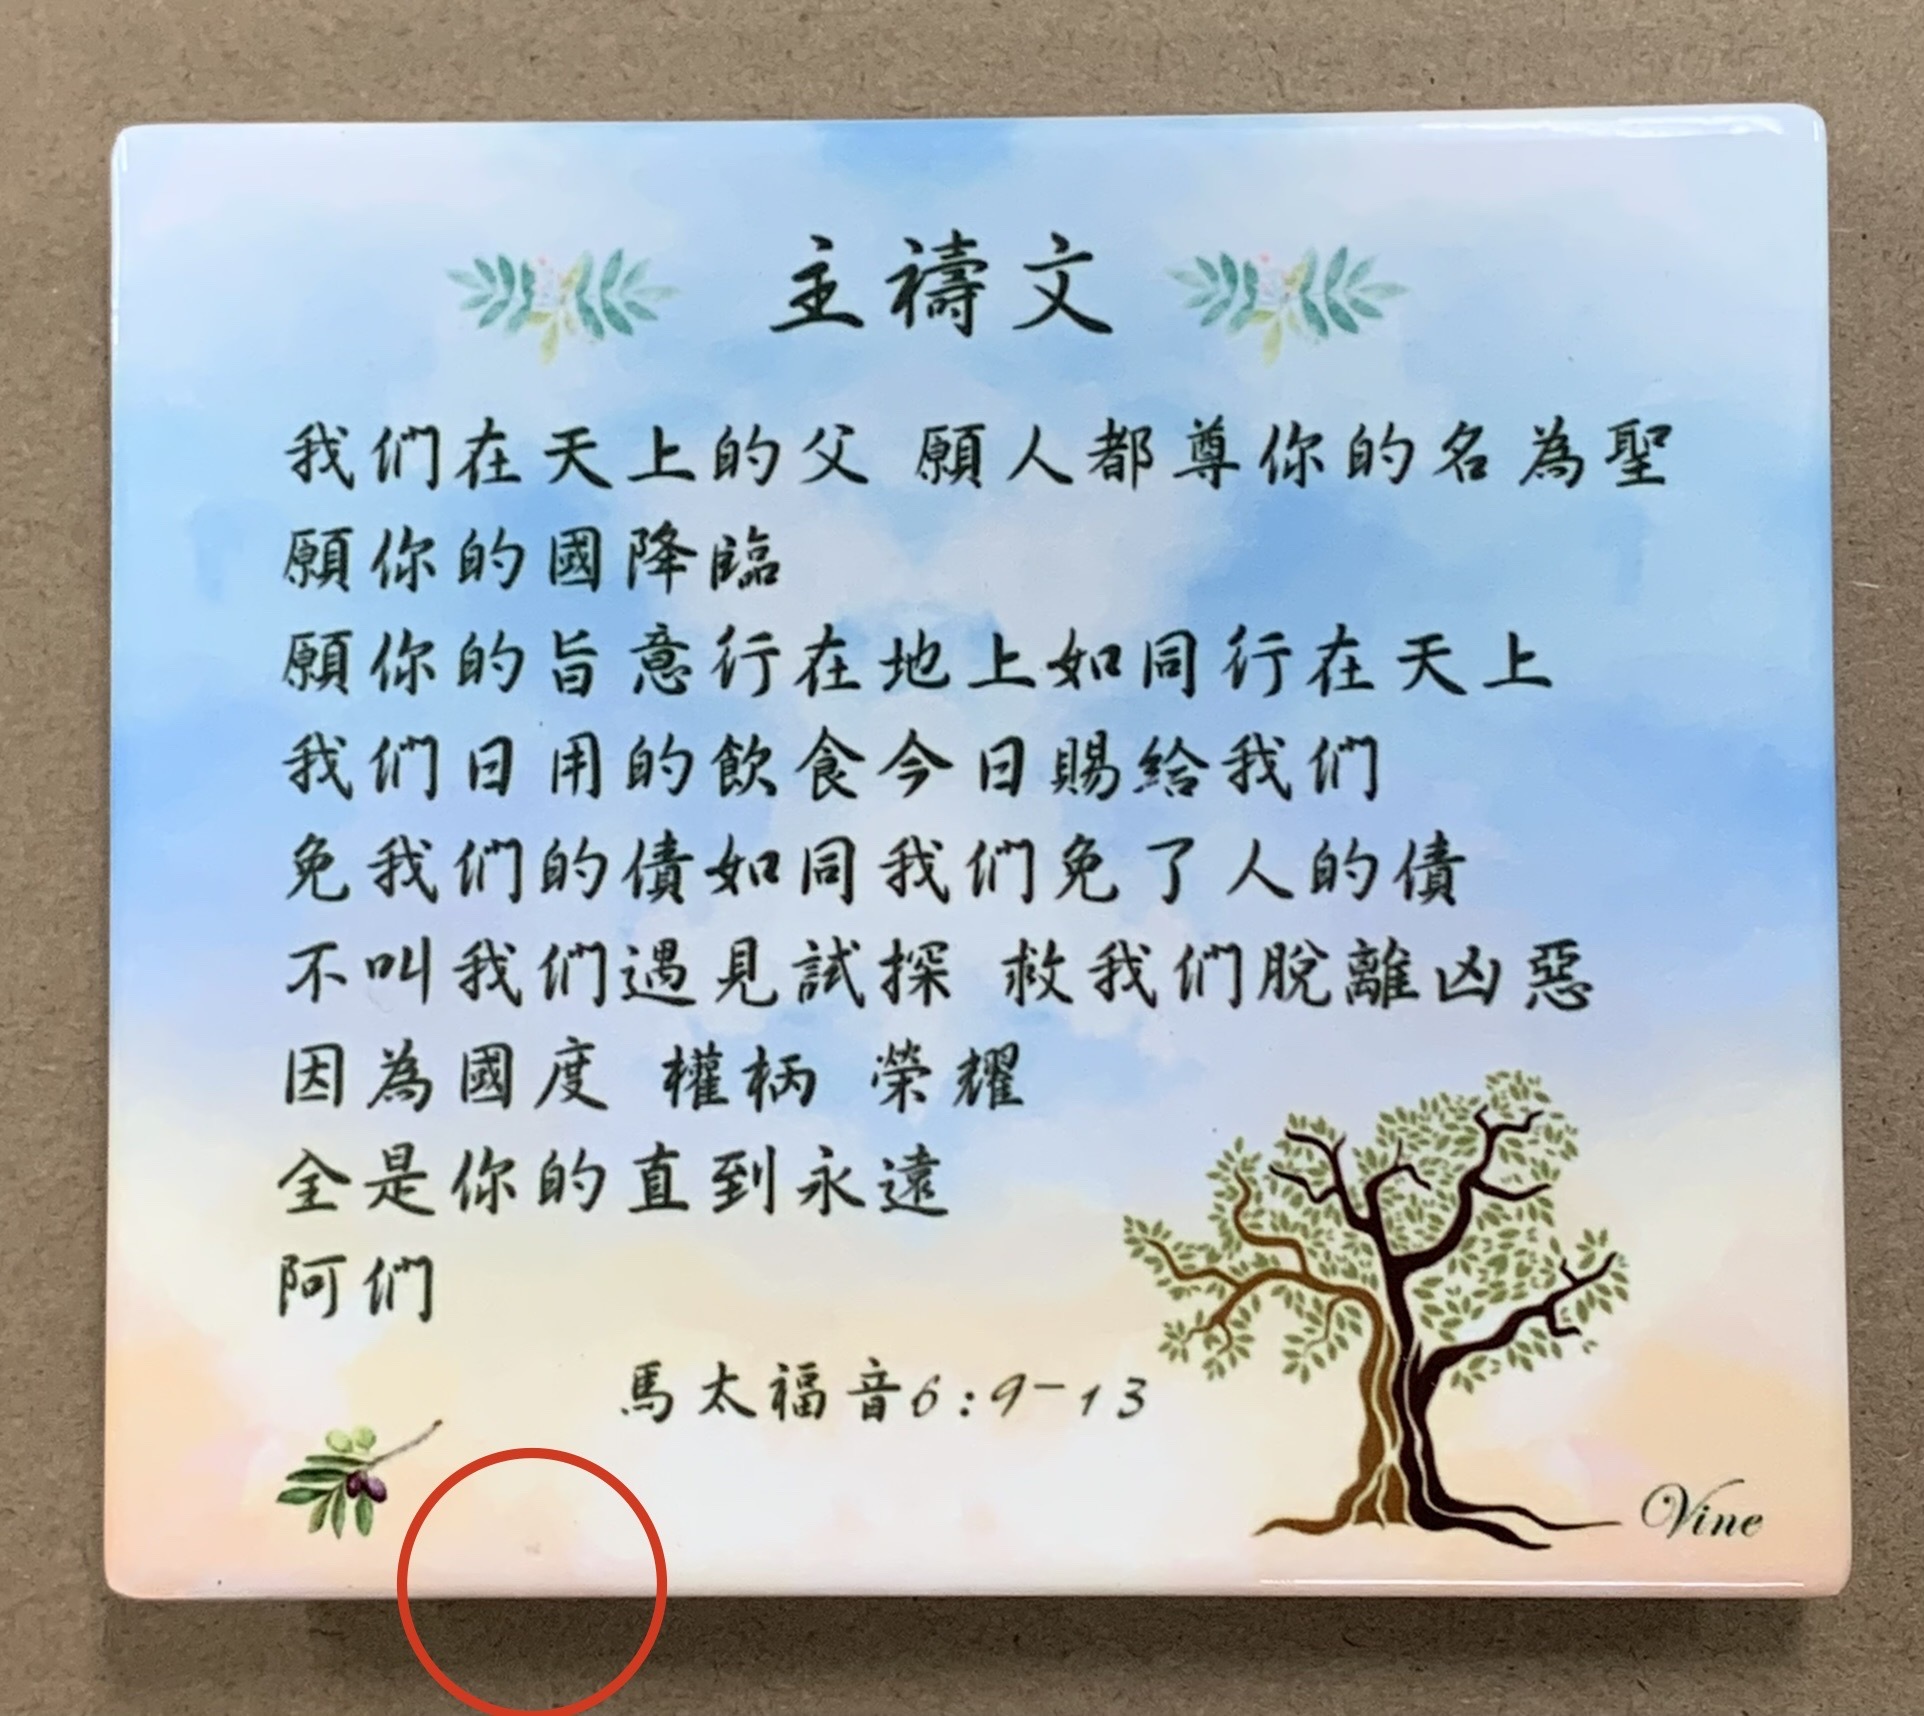 主禱文
我們在天上的父 願人都尊你的名為聖
願你的國降臨
願你的旨意行在地上如同行在天上
我們日用的飲食今日賜給我們
免我們的債如同我們免了人的債
不叫我們遇見試探 救我們脫離凶惡
因為國度 權柄 榮耀
全是你的直到永遠
阿們
馬太福音6:9-13
Vine